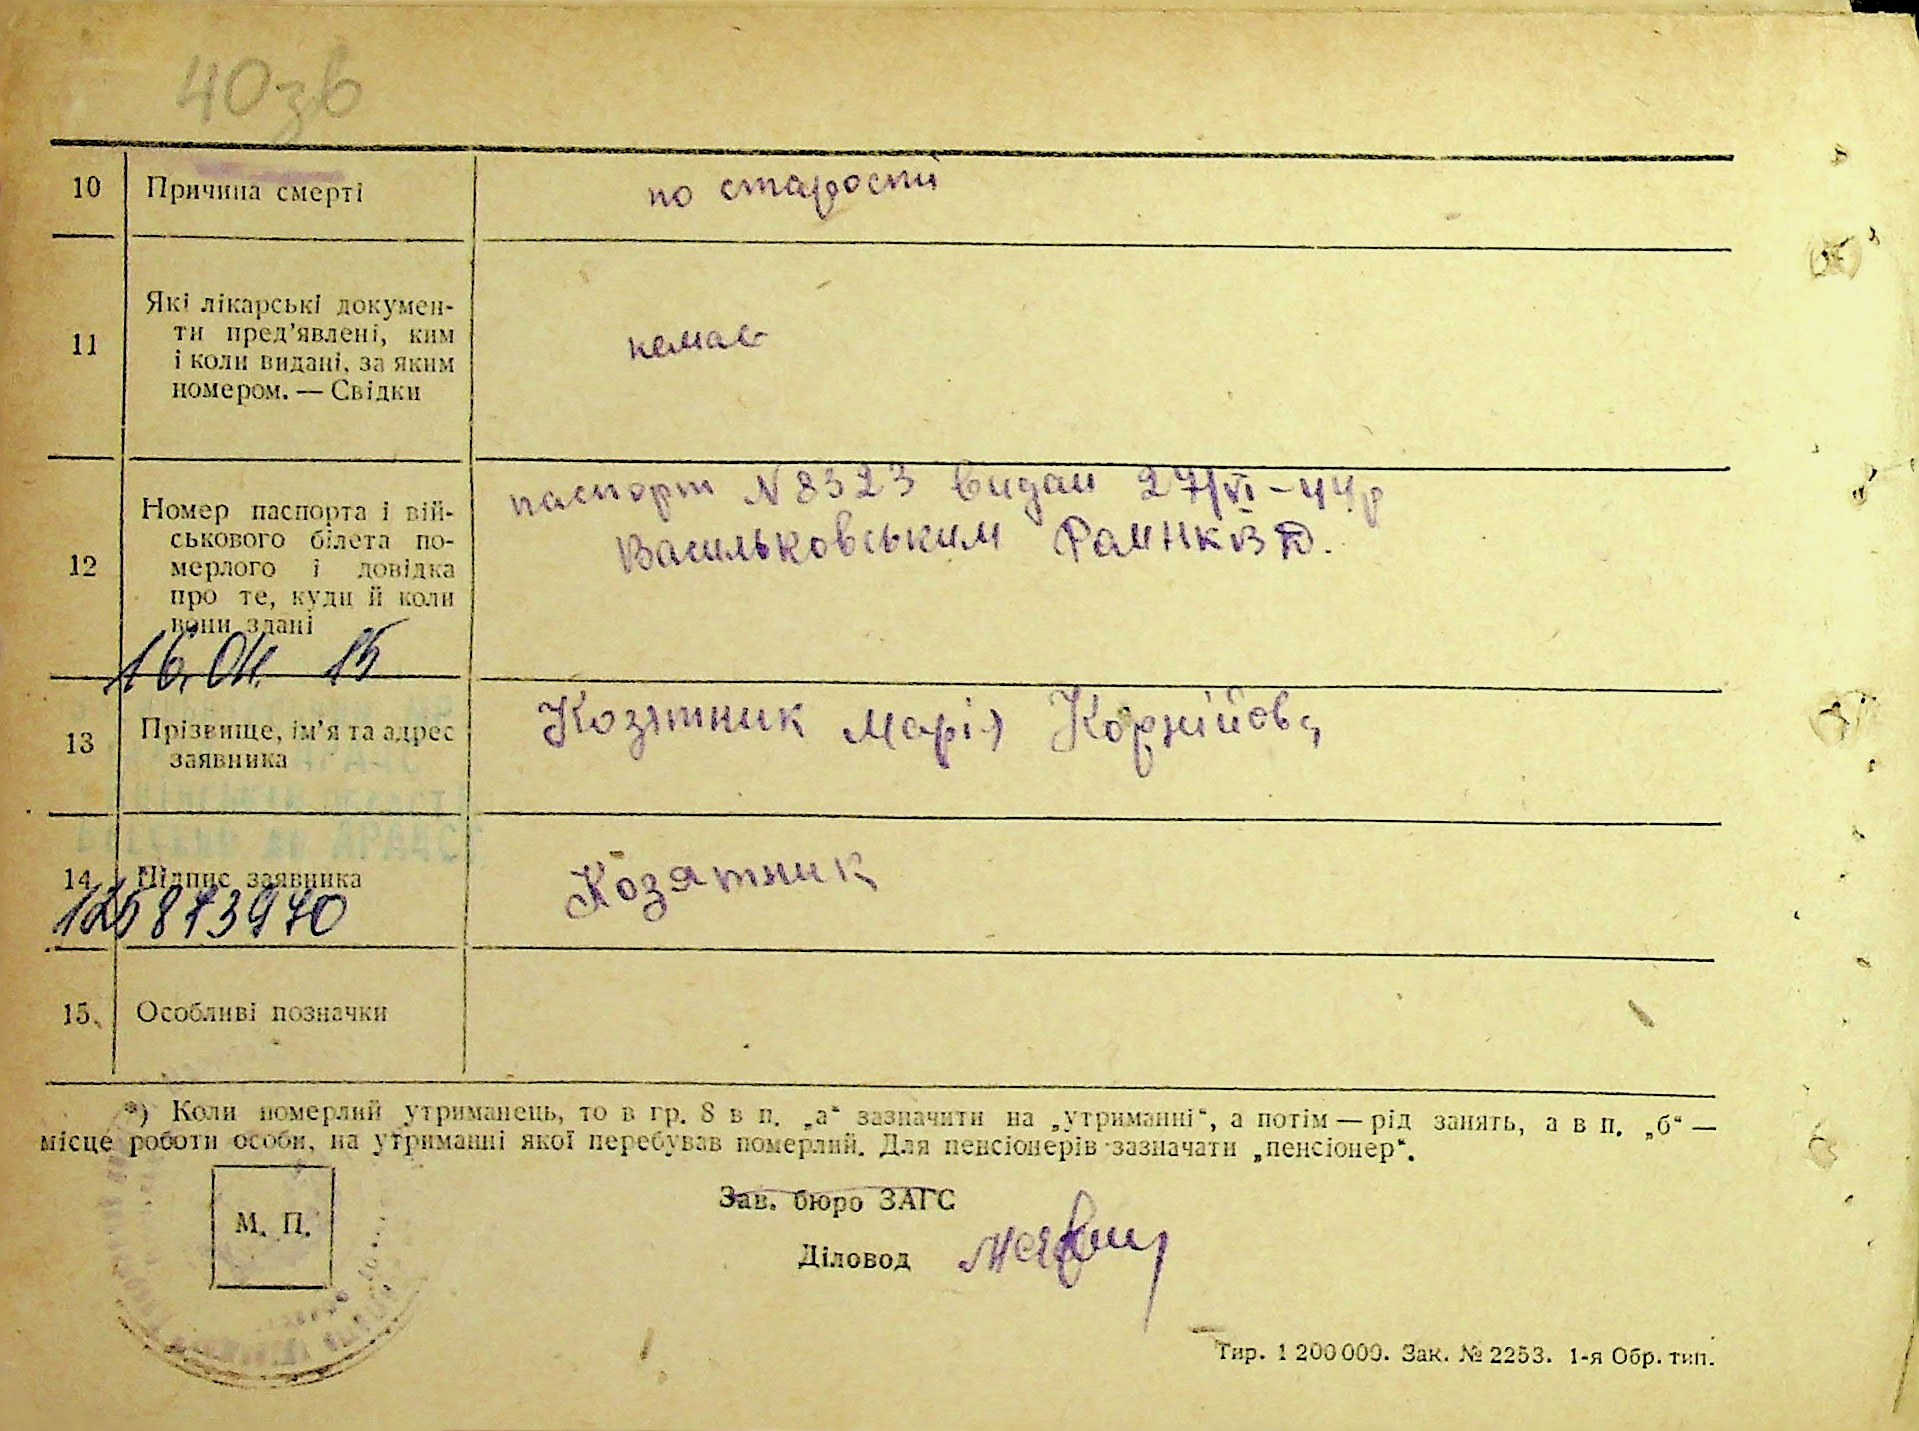 40зв
10 Причина смерті по старости
11 Які лікарські докумен-
ти пред'явлені, ким
і коли видані, за яким
номером. — Свідки
немає
12 Номер паспорта і вій-
ськового білета по-
мерлого і довідка
про те, куди й коли
вони здані
паспорт N 8323 видан 27/VI-44р
Васильковським РаиНКВД.
16.04. 15
13 Прізвище, ім'я та адрес
заявника
Козятник Марія Корнійовa
14 Підпис заявника Козятник
125873970
15. Особливі позначки
*) Коли померлий утриманець, то в гр. 8 в п. „а“ зазначити на „утриманні“, а потім — рід занять, а в п. „б“ —
місце роботи особи, на утриманні якої перебував померлий. Для пенсіонерів зазначати „пенсіонер“.
М. П.
Зав. бюро ЗАГС
Діловод
Тир. 1 200 000. Зак. № 2253. 1-я Обр. тип.